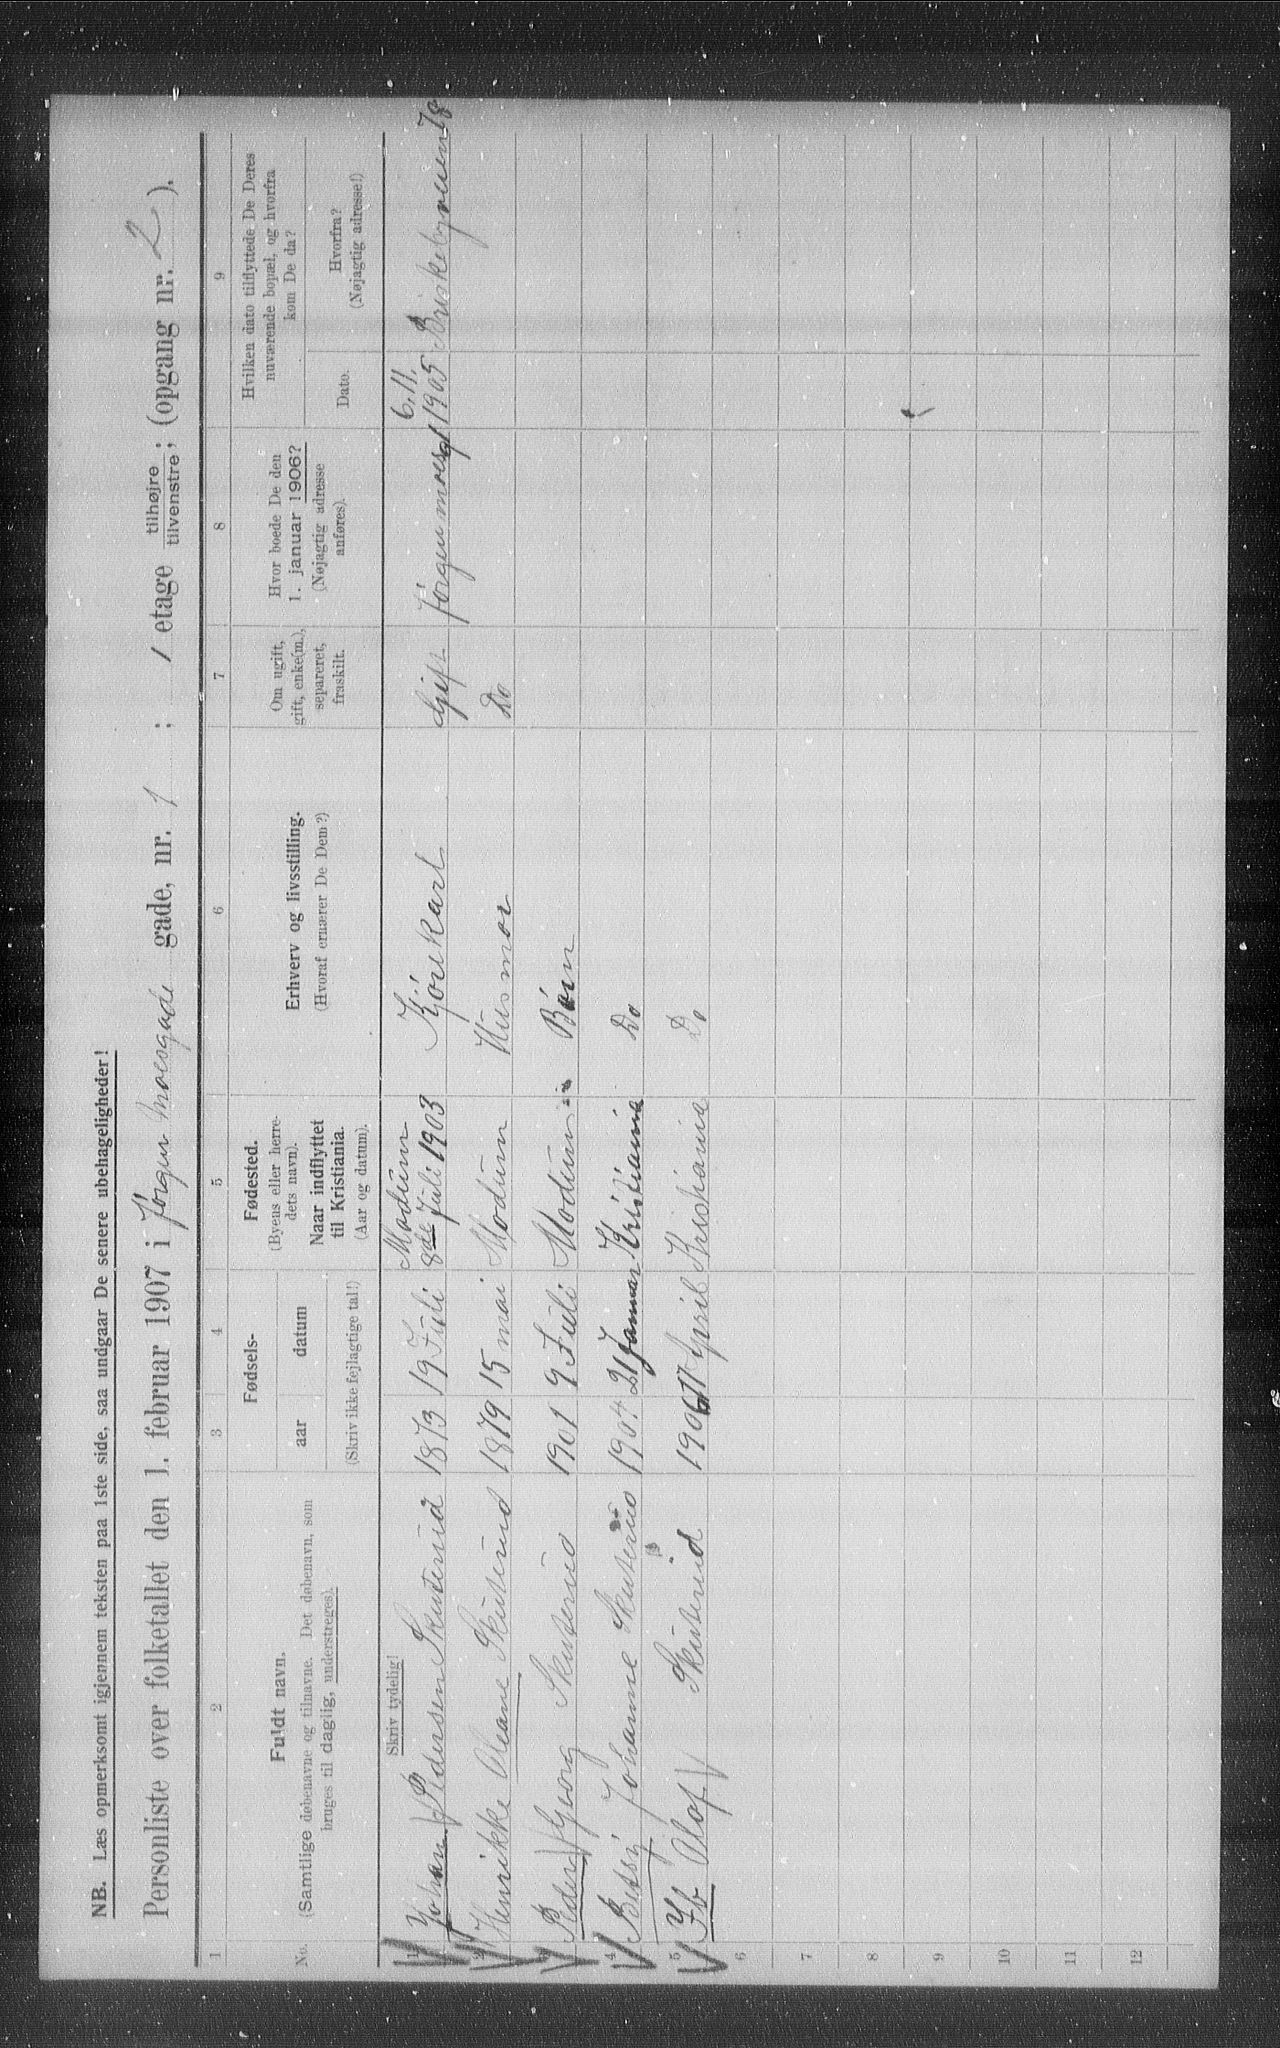 NB. Læs opmerksomt igjennem teksten paa 1ste side, saa undgaar De senere ubehageligheder!
Personliste over folketallet den 1. februar 1907 i Jørgen Moesgade gade, nr. 1 ; 1 etage tilhøjre / tilvenstre; (opgang nr. 2 ).
1 2 3 4 5 6 7 8 9
No.
Fuldt navn.
(Samtlige døbenavne og tilnavne. Det døbenavn, som
bruges til daglig, understreges).
Fødsels-
aar datum
(Skriv ikke fejlagtige tal!)
Fødested.
(Byens eller herre-
dets navn).
Naar indflyttet
til Kristiania.
(Aar og datum).
Erhverv og livsstilling.
(Hvoraf ernærer De Dem?)
Om ugift,
gift, enke(m.),
separeret,
fraskilt.
Hvor boede De den
1. januar 1906?
(Nøjagtig adresse
anføres).
Hvilken dato tilflyttede De Deres
nuværende bopæl, og hvorfra
kom De da?
Dato.
Hvorfra?
(Nøjagtig adresse!)
Skriv tydelig!
1 Johan Pedersen Skuterud 1873 19 Juli Modum 8de Juli 1903 Kjörekarl Gift Jörgen moesg 1 6.11. 1905 Briskebyveien 78
2 Henrikke Oleane Skuterud 1879 15 mai Modum Husmor Do
3 Peder Georg Skuterud 1901 9 Juli Modum Börn
4 Betsy Johanne Skuterud 1904 21 Januar Kristiania Do
5 Ib Olof Skuterud 1906 17 April Kristiania Do
6
7
8
9
10
11
12